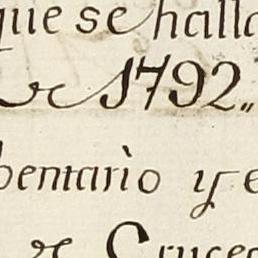 que se halla
de 1792,,
bentario y e
de Cruces